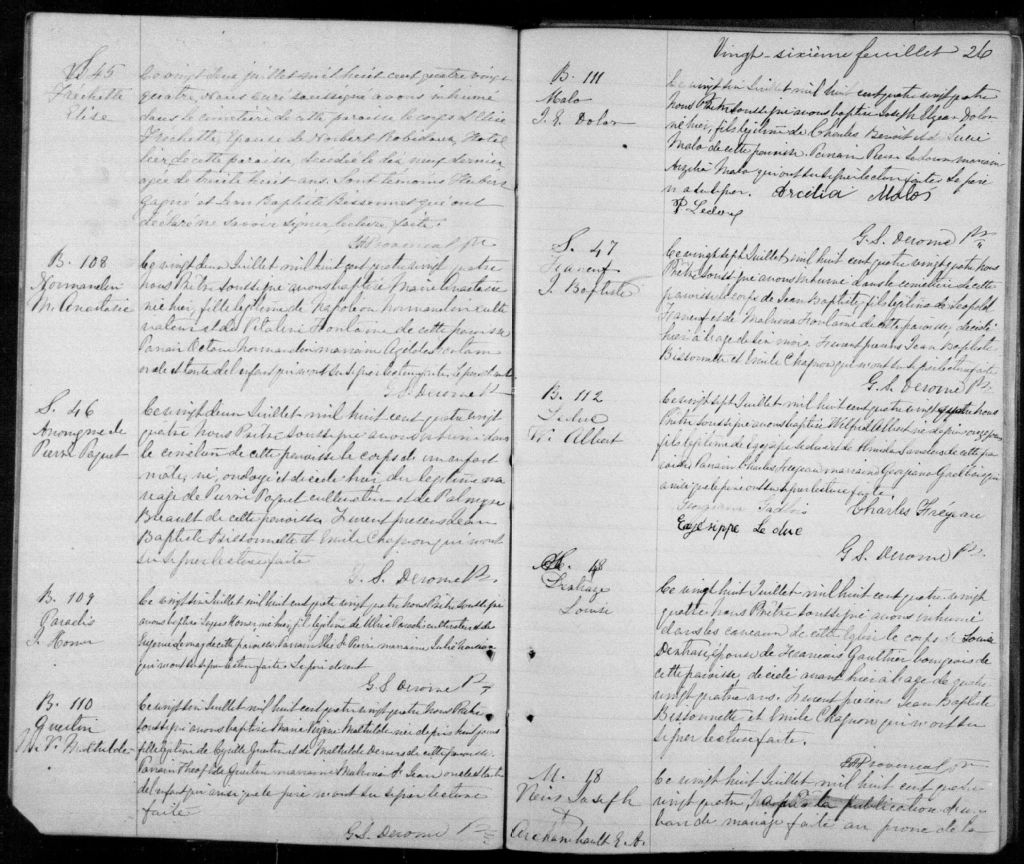 S. 45
Frechette
Elise
Ce vingt deux juillet mil huit cent quatre vingt
quatre, Nous curé soussigné avons inhumé
dans le cimetière de cette paroisse le corps d'Elise
Frechette Epouse de Norbert Robidoux, Hotel
lier de cette paroisse décédée le dix neuf dernier
agée de trente huit ans. Sont témoins Hubert
Gagné et Jean Baptiste Bissonnet qui ont
déclaré ne savoir signer lecture faite.
Provencal ptr
B. 108
Normandin
M. Anastasie
Ce vingt deux Juillet mil huit cent quatre vingt quatre
nous Prêtre soussigné avons baptisé Marie Anastasie
née hier, fille légitime de Napoléon Normandin culti
vateur et de Vitaline Fontaine de cette paroisse
Parrain Octave Normandin marraine
oncle et tante de l'enfant qui n'ont su signer lecture faite, le père
G. S. Derome Ptr
S. 46
Anonyme de
Pierre Paquet
Ce vingt deux Juillet mil huit cent quatre vingt
quatre Nous Prêtre soussigné avons inhumé dans
le cimetière de cette paroisse le corps d'un enfant
mâle, né, ondoyé et décédé hier du légitime ma
riage de Pierre Paquet cultivateur et de Palmyre
Breault de cette paroisse. Furent présens Jean
Baptiste Bissonnette et Emile Chagnon qui n'ont
su signer lecture faite
G. S. Derome Ptr.
B. 109
Paradis
J. Homer
Ce vingt six Juillet mil huit cent quatre vingt quatre Nous Prêtre soussigné
avons baptisé Homer, né hier, fils légitime de Ulric Paradis cultivateur et de
Eugénie de cette paroisse. Parrain St Pierre marraine
qui n'ont su signer lecture faite. Le père absent
G. S. Derome Ptr
B. 110
Guertin
M. V. Mathilde
Ce vingt six Juillet mil huit cent quatre vingt quatre Nous Prêtre
soussigné avons baptisé Marie Mathilde née depuis huit jours
fille légitime de Guertin et de Mathilde Demers de cette paroisse
Parrain Théophile Guertin marraine Malvina St Jean oncle et tante
de l'enfant qui ainsi que le père n'ont su signer lecture
faite
G. S. Derome Ptr
Vingt-sixième feuillet 26
B. 111
Malo
J. E. Dolor
Ce vingt six Juillet mil huit cent quatre vingt quatre
Nous Prêtre soussigné avons baptisé Joseph Dolor
né hier, fils légitime de Charles Benoît et de
Malo de cette paroisse. Parrain Pierre Ledoux marraine
Malo qui ont su signer lecture faite. Le père
n'a su signer. Arcélia Malo
P. Ledoux
G. S. Derome Ptr
S. 47
J. Baptiste
Ce vingt sept Juillet mil huit cent quatre vingt quatre nous
Prêtre soussigné avons inhumé dans le cimetière de cette
paroisse le corps de Jean Baptiste, fils légitime de Léopold
et de Malvina Fontaine de cette paroisse, décédé
hier à l'age de six mois. Furent présens Jean Baptiste
Bissonnette et Emile Chagnon qui n'ont su signer lecture faite
G. S. Derome Ptr.
B. 112
Leduc
W. Albert
Ce vingt sept Juillet mil huit cent quatre vingt quatre nous
Prêtre soussigné avons baptisé Wilfrid Albert né depuis onze jours
fils légitime de Leduc et de de cette pa
roisse. Parrain Charles Frégeau marraine Georgiana qui
ainsi que le père ont su signer lecture faite.
Charles Frégeau
Leduc
G. S. Derome Ptr.
S. 48
Louise
Ce vingt huit Juillet mil huit cent quatre-vingt
quatre nous Prêtre soussigné avons inhumé
dans les caveaux de cette église le corps de Louise
épouse de François Gauthier bourgeois de
cette paroisse, décédée avant hier à l'age de quatre
vingt quatre ans. Furent présens Jean Baptiste
Bissonnette et Emile Chagnon qui n'ont su
signer lecture faite.
Provencal ptr
M. 18
Joseph
&
Archambault E. A.
Ce vingt huit Juillet mil huit cent quatre
vingt quatre après la publication d'un
ban de mariage faite au prone de la